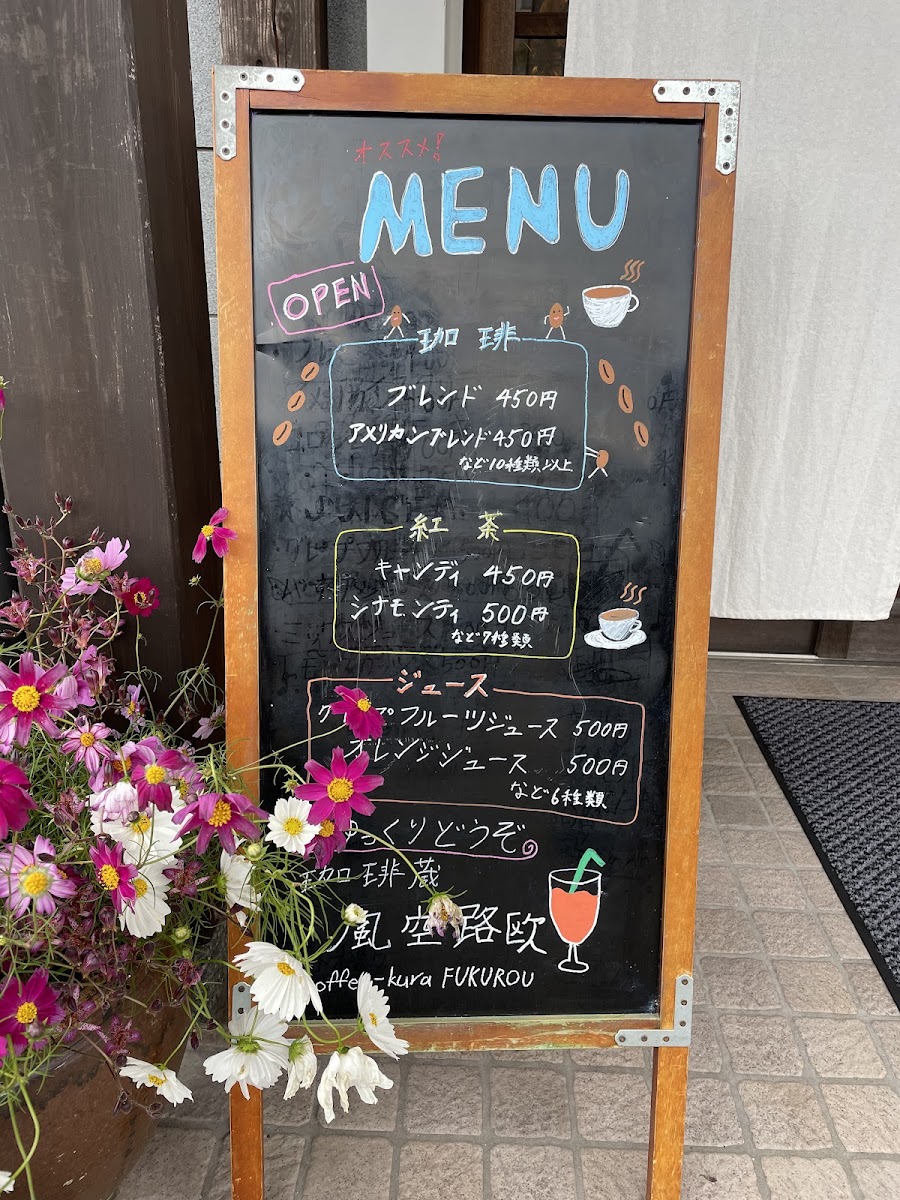 オススメ!
MENU
OPEN
珈琲
ブレンド 450円
アメリカンブレンド 450円
など10種類以上
紅茶
キャンディ 450円
シナモンティ 500円
など7種類
ジュース
プフルーツジュース 500円
オレンジジュース 500円
など6種類
っくりどうぞ
珈琲蔵
風空路欧
offee-kura FUKUROU